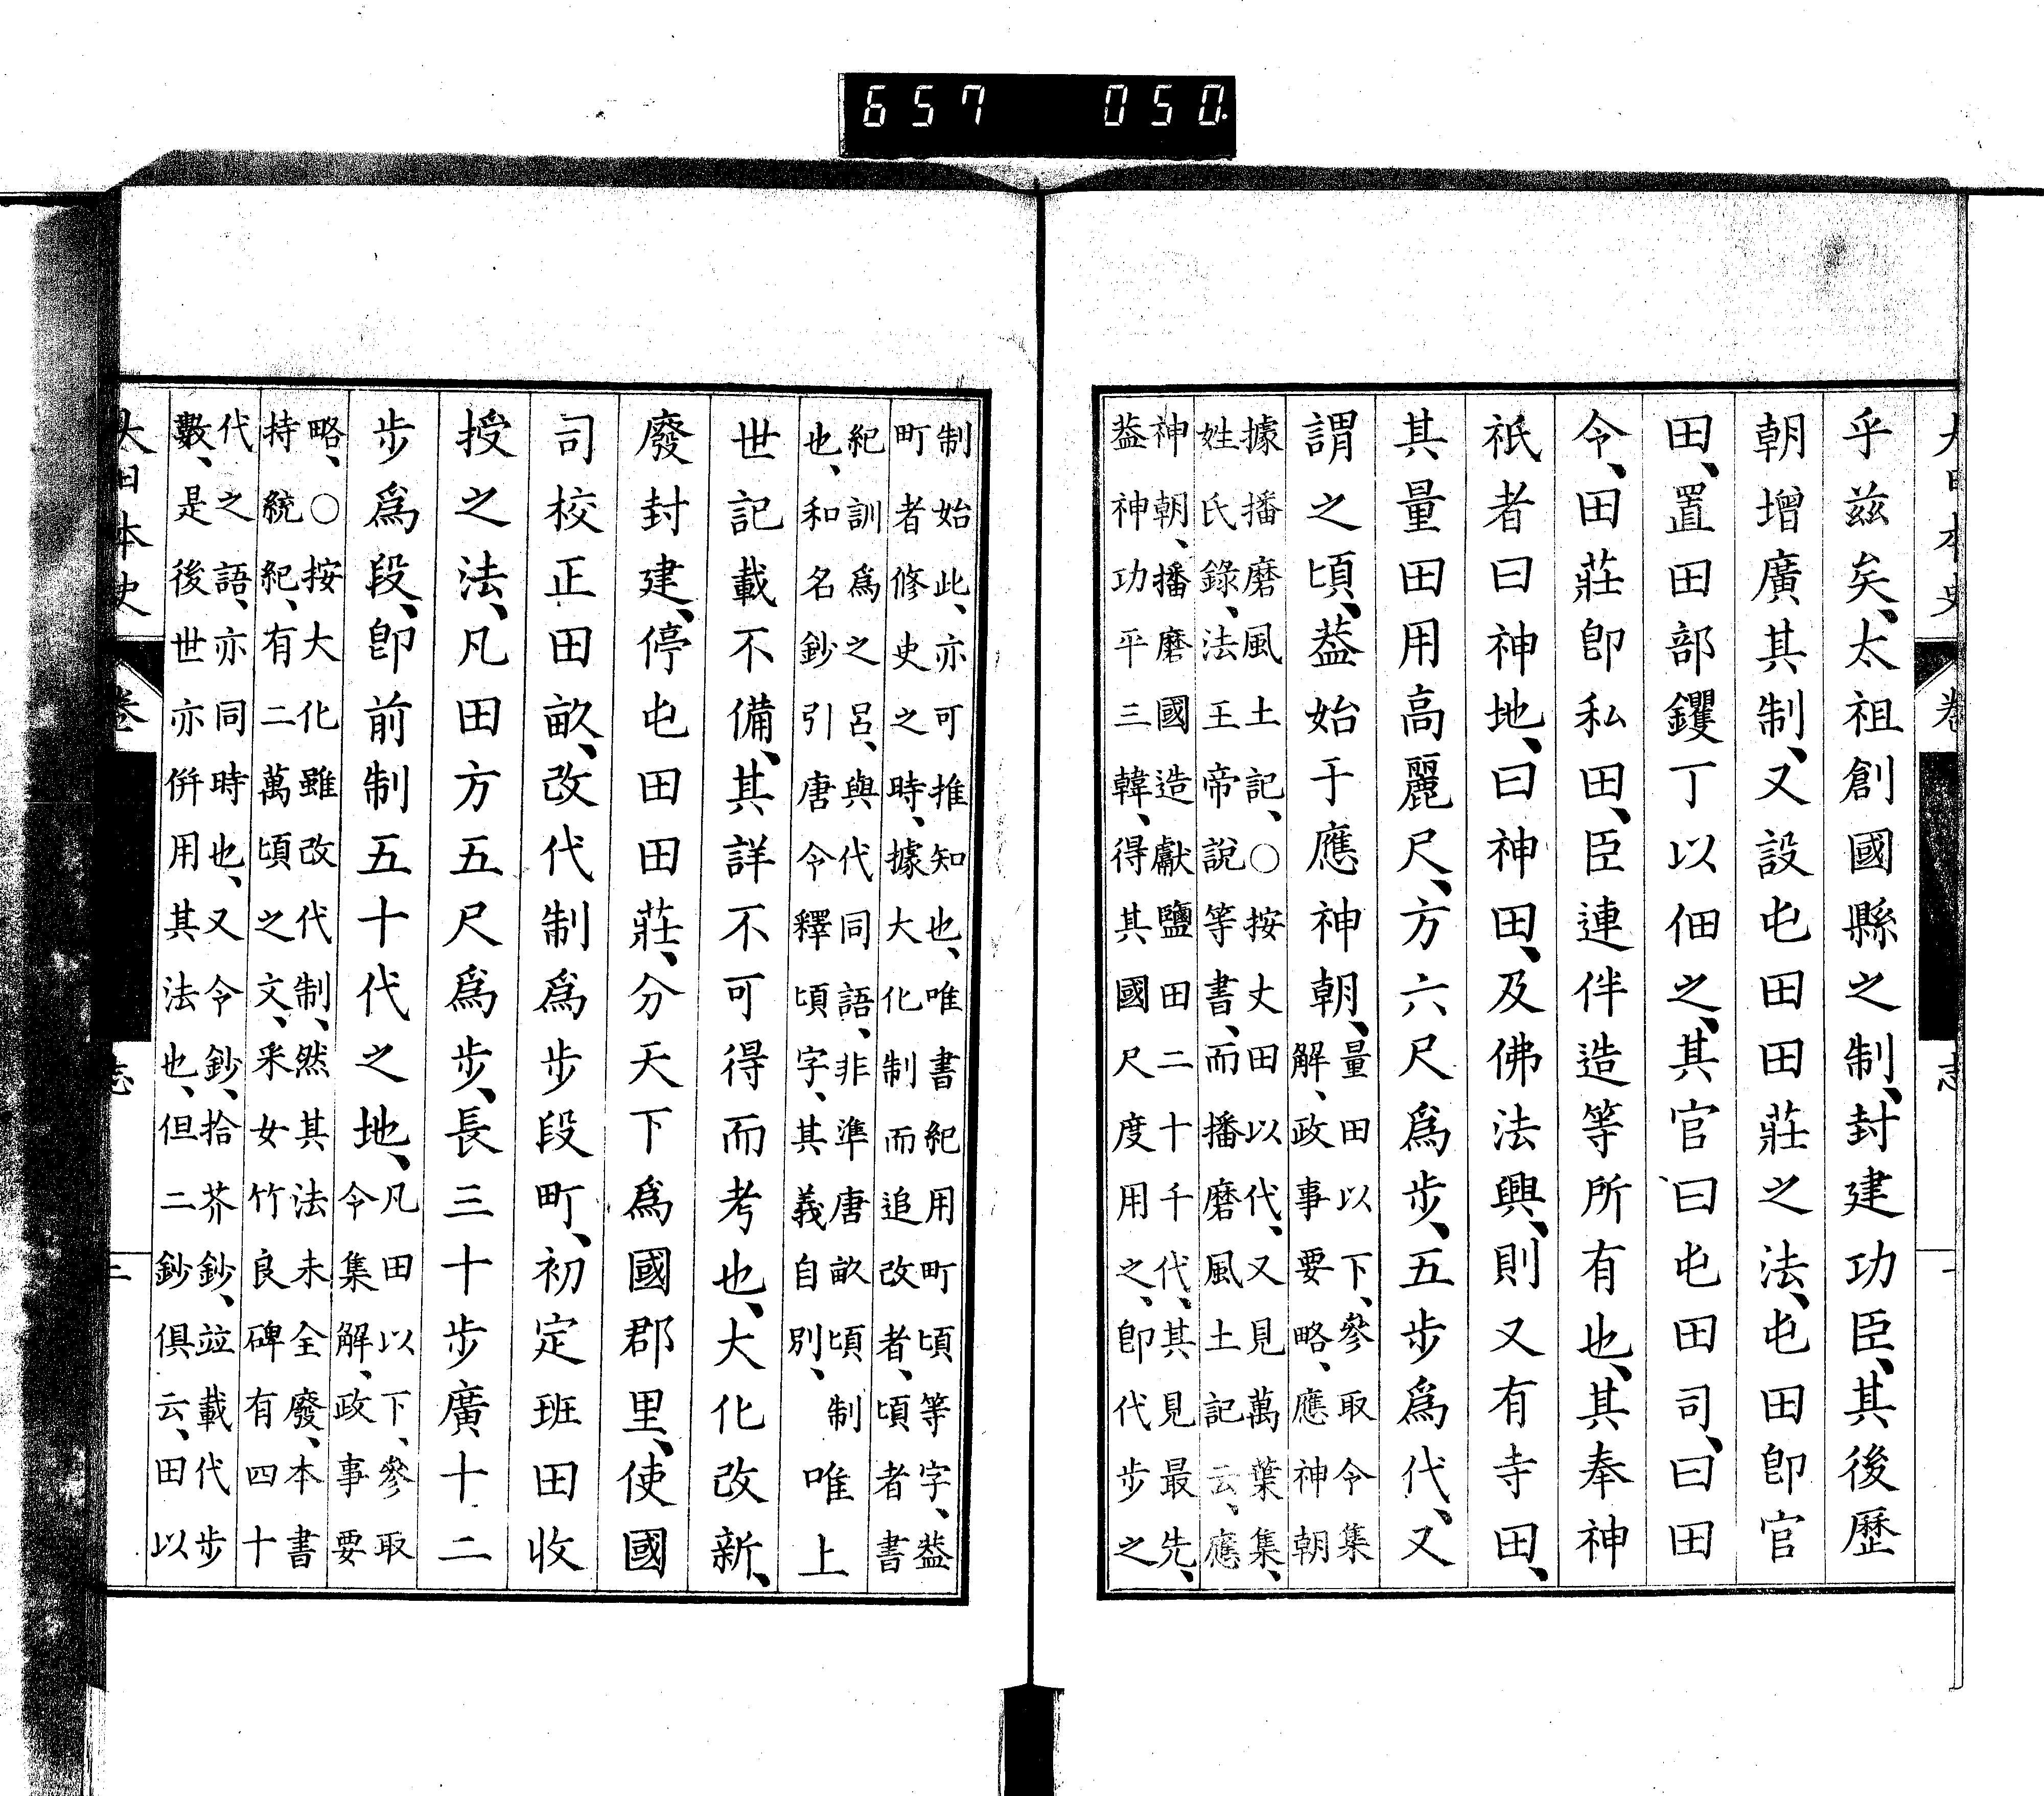 657 050.
乎茲矣、太祖創國縣之制、封建功臣、其後歷
朝增廣其制、又設屯田田莊之法、屯田卽官
田、置田部钁丁以佃之、其官曰屯田司、曰田
令、田莊卽私田、臣連伴造等所有也、其奉神
祇者曰神地、曰神田、及佛法興、則又有寺田、
其量田用高麗尺、方六尺爲步、五步爲代、又
謂之頃、葢始于應神朝、
量田以下、參取令集
解、政事要略、應神朝
據播磨風土記、○按丈田以代、又見萬葉集、
姓氏錄、法王帝說等書、而播磨風土記云、應
神朝、播磨國造獻鹽田二十千代、其見最先、
葢神功平三韓、得其國尺度用之、卽代步之
制始此、亦可推知也、唯書紀用町頃等字、葢
町者修史之時、據大化制而追改者、頃者書
紀訓爲之呂、與代同語、非準唐畝頃制
也、和名鈔引唐令釋頃字、其義自別、
唯上
世記載不備、其詳不可得而考也、大化改新、
廢封建、停屯田田莊、分天下爲國郡里、使國
司校正田畝、改代制爲步段町、初定班田收
授之法、凡田方五尺爲步、長三十步廣十二
步爲段、卽前制五十代之地、
凡田以下、參取
令集解、政事要
略、○按大化雖改代制、然其法未全廢、本書
持統紀、有二萬頃之文、釆女竹良碑有四十
代之語、亦同時也、又令鈔、拾芥鈔、竝載代步
數、是後世亦倂用其法也、但二鈔俱云、田以
大日本史
卷
志
二